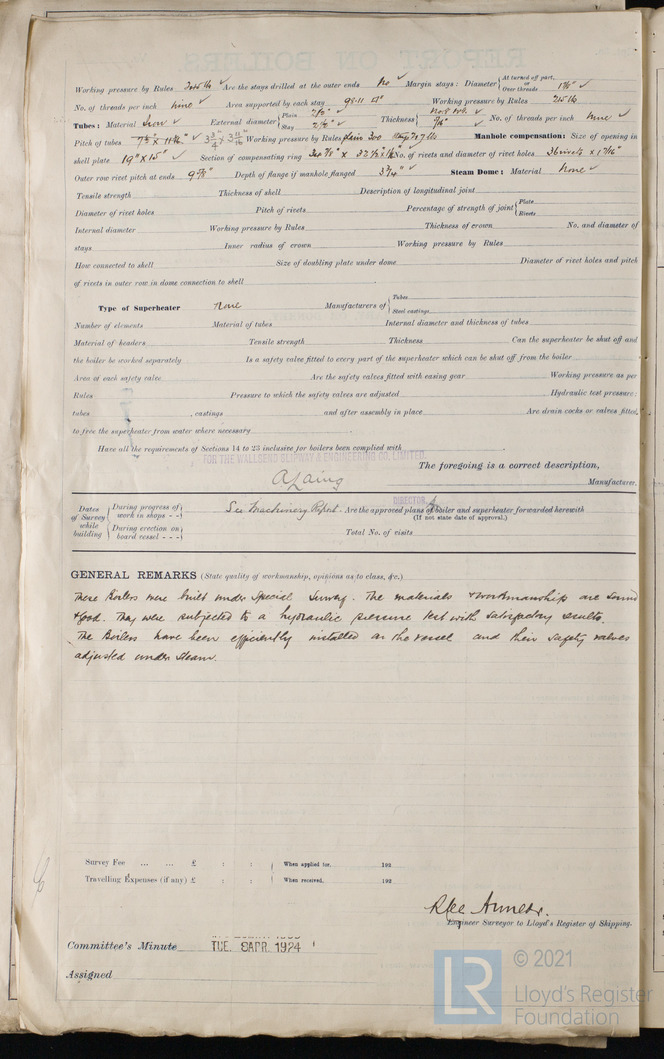 Working pressure by Rules ✓ Are the stays drilled at the outer ends No ✓ Margin stays: Diameter { At turned off part, or Over threads ✓
No. of threads per inch nine ✓ Area supported by each stay ✓ Working pressure by Rules 215 lb
Tubes: Material Iron ✓ External diameter { Plain Stay 2½" ✓ Thickness { ✓ No. of threads per inch nine ✓
Pitch of tubes ✓ Working pressure by Rules Manhole compensation: Size of opening in
shell plate 19" x 15" ✓ Section of compensating ring No. of rivets and diameter of rivet holes 36 rivets x 1 7/16"
Outer row rivet pitch at ends ✓ Depth of flange if manhole flanged 3¾" ✓ Steam Dome: Material None ✓
Tensile strength Thickness of shell Description of longitudinal joint
Diameter of rivet holes Pitch of rivets Percentage of strength of joint { Plate Rivets
Internal diameter Working pressure by Rules Thickness of crown No. and diameter of
stays Inner radius of crown Working pressure by Rules
How connected to shell Size of doubling plate under dome Diameter of rivet holes and pitch
of rivets in outer row in dome connection to shell
Type of Superheater None Manufacturers of { Tubes Steel castings
Number of elements Material of tubes Internal diameter and thickness of tubes
Material of headers Tensile strength Thickness Can the superheater be shut off and
the boiler be worked separately Is a safety valve fitted to every part of the superheater which can be shut off from the boiler
Area of each safety valve Are the safety valves fitted with easing gear Working pressure as per
Rules Pressure to which the safety valves are adjusted Hydraulic test pressure:
tubes , castings and after assembly in place Are drain cocks or valves fitted
to free the superheater from water where necessary
Have all the requirements of Sections 14 to 23 inclusive for boilers been complied with
FOR THE WALLSEND SLIPWAY & ENGINEERING CO. LIMITED.
The foregoing is a correct description,
A Laing Manufacturer.
DIRECTOR.
Dates of Survey while building { During progress of work in shops - - During erection on board vessel - - - } See Machinery Report. Are the approved plans of boiler and superheater forwarded herewith
(If not state date of approval.)
Total No. of visits
GENERAL REMARKS (State quality of workmanship, opinions as to class, &c.)
These Boilers were built under Special Survey. The materials & workmanship are sound
& good. They were subjected to a hydraulic pressure test with satisfactory results.
The Boilers have been efficiently installed in the vessel and their safety valves
adjusted under steam.
Survey Fee ... ... £ : : { When applied for, 192
Travelling Expenses (if any) £ : : { When received, 192
Engineer Surveyor to Lloyd's Register of Shipping.
Committee's Minute TUE. 8 APR. 1924
Assigned
LR © 2021
Lloyd's Register
Foundation